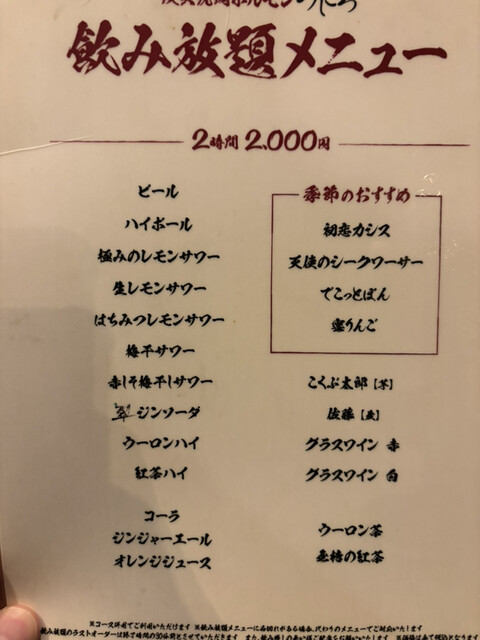 飲み放題メニュー
2時間 2,000円
ビール
ハイボール
極みのレモンサワー
生レモンサワー
はちみつレモンサワー
梅干サワー
赤しそ梅干しサワー
翠ジンソーダ
ウーロンハイ
紅茶ハイ
コーラ
ジンジャーエール
オレンジジュース
季節のおすすめ
初恋カシス
天使のシークワーサー
でこっとぽん
蜜りんご
こくぶ太郎【芋】
佐藤【麦】
グラスワイン 赤
グラスワイン 白
ウーロン茶
無糖の紅茶
※コース併用でご利用いただけます ※飲み放題メニューに品切れがある場合、代わりのメニューでご対応いたします
飲み放題のラストオーダーは終了時間の30分前とさせていただきます